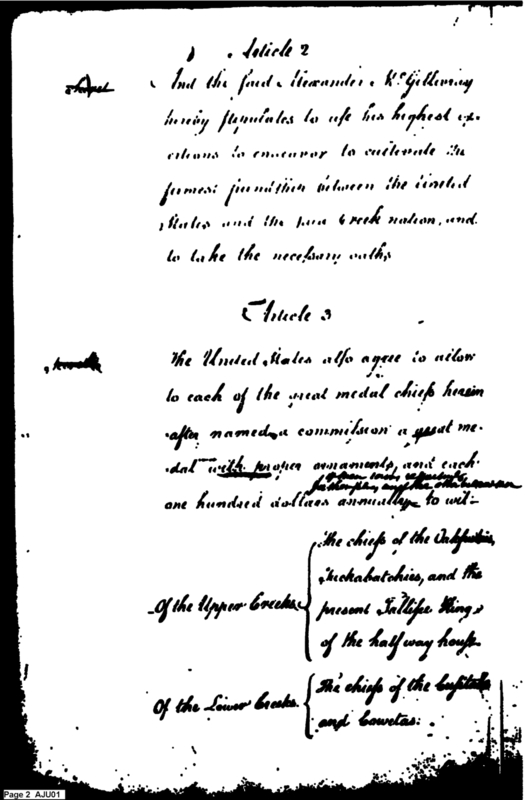 Article 2
And the said Alexander McGillivray
hereby stipulates to use his highest ex-
ertions to endeavor to cultivate the
firmest friendship between the United
States and the said Creek nation, and
to take the necessary oaths
Article 3
The United States also agree to allow
to each of the great medal chiefs herein
after named, a commission a great me-
dal with proper ornaments, and each
one hundred dollars annually to wit:-
Of the Upper Creeks
The chiefs of the
Tuckabatchies, and the
present Tallisee King
of the half way house
Of the Lower Creeks
The chiefs of the Cusitahs
and Cowetas:
Page 2 AJU01